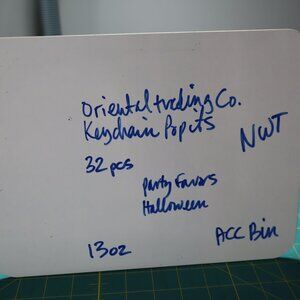 Oriental trading Co.
Keychain Popits
NWT
32 pcs
party Favors
Halloween
13oz
ACC Bin